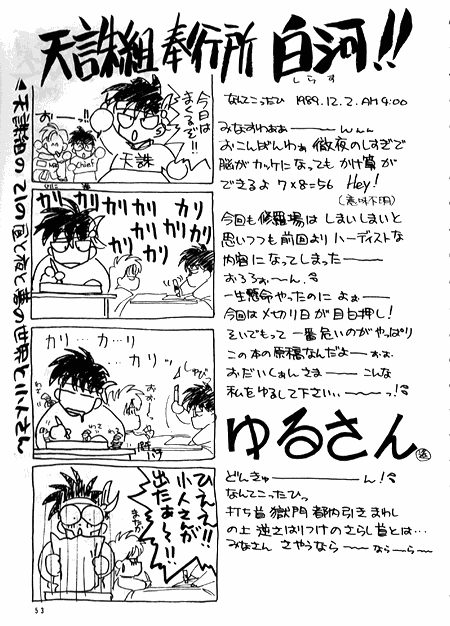 天誅組 奉行所 白河!!
しらす
なんてこったひ 1989.12.2. AM 9:00
みなすわぁぁーーんんん
おこんばんわぁ 徹夜のしすぎで
脳がカッケになっても かけ算が
できるよ 7×8=56 Hey!
(意味不明)
今回も修羅場は しまいしまいと
思いつつも前回より ハーディストな
内容に なってしまったーー
おろろぉーん。
一生懸命やったのに よぉーー
今回はメカリ日が目白押し!
そいでもって 一番危いのがやっぱり
この本の原稿なんだよー
おだいしぇぁんさまーー こんな
私をゆるして下さい、ーーっ!
ゆるさん
どんきゅーーーーん!
なんてこったひっ
打ち首 獄門 都内引きまわし
の上 逆さはりつけのさらし首とは…
みなさん さやうならーー ならーらー
今日は
まくるぞ!!
おーーっ!!
天誅
Chief
カリ カリ カリ
カリ カリ カリ
カリ カリ
カリ…カリ…
カリ…ッ
ひえぇ!!
小人さんが
出たぁ〜!!
◀天誅組の21の昼と夜と夢の世界と小人さん
53